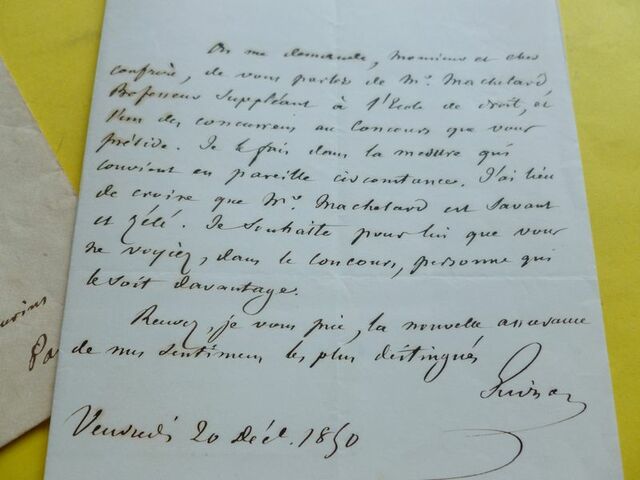 On me demande, Monsieur et cher
confrère, de vous parler de Mr. Machelard,
Professeur Suppléant à l'Ecole de droit, et
l'un des concurrens au Concours que vous
préside. Je le fais dans la mesure qui
convient en pareille circonstance. J'ai lieu
de croire que Mr. Machelard est Savant
et zélé. Je souhaite pour lui que vous
ne voyiez, dans le concours, personne qui
le soit davantage.
Recevez, je vous prie, la nouvelle assurance
de mes sentimens les plus distingués
Vendredi 20 Déc. 1850
Pa